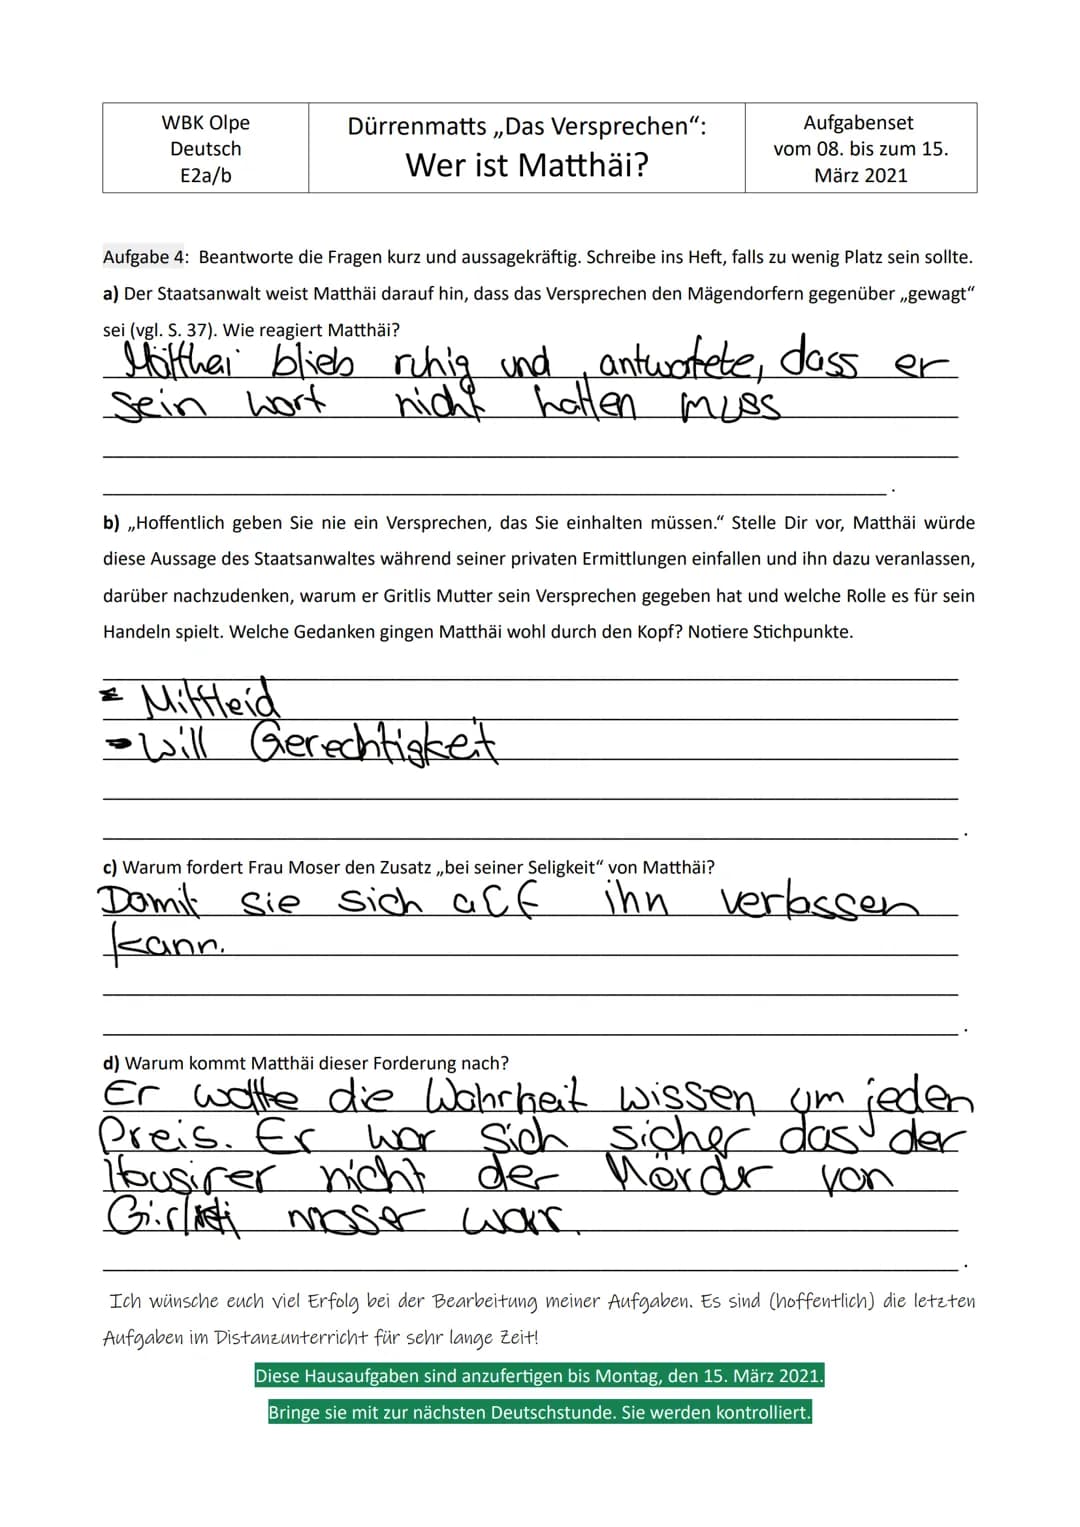 WBK Olpe
Deutsch
E2a/b
Dürrenmatts „Das Versprechen“:
Wer ist Matthäi?
Aufgabenset
vom 08. bis zum 15.
März 2021
Aufgabe 4: Beantworte die Fragen kurz und aussagekräftig. Schreibe ins Heft, falls zu wenig Platz sein sollte.
a) Der Staatsanwalt weist Matthäi darauf hin, dass das Versprechen den Mägendorfern gegenüber „gewagt“
sei (vgl. S. 37). Wie reagiert Matthäi?
Mätthai blieb ruhig und, antwortete, dass er
sein wort nicht halten muss
b) „Hoffentlich geben Sie nie ein Versprechen, das Sie einhalten müssen.“ Stelle Dir vor, Matthäi würde
diese Aussage des Staatsanwaltes während seiner privaten Ermittlungen einfallen und ihn dazu veranlassen,
darüber nachzudenken, warum er Gritlis Mutter sein Versprechen gegeben hat und welche Rolle es für sein
Handeln spielt. Welche Gedanken gingen Matthäi wohl durch den Kopf? Notiere Stichpunkte.
- Mittleid
- Will Gerechtigkeit
c) Warum fordert Frau Moser den Zusatz „bei seiner Seligkeit“ von Matthäi?
Damit sie sich auf ihn verlassen
kann.
d) Warum kommt Matthäi dieser Forderung nach?
Er wollte die Wahrheit wissen um jeden
Preis. Er war sich sicher das der
Housirer nicht der Mörder von
moser war.
Ich wünsche euch viel Erfolg bei der Bearbeitung meiner Aufgaben. Es sind (hoffentlich) die letzten
Aufgaben im Distanzunterricht für sehr lange Zeit!
Diese Hausaufgaben sind anzufertigen bis Montag, den 15. März 2021.
Bringe sie mit zur nächsten Deutschstunde. Sie werden kontrolliert.